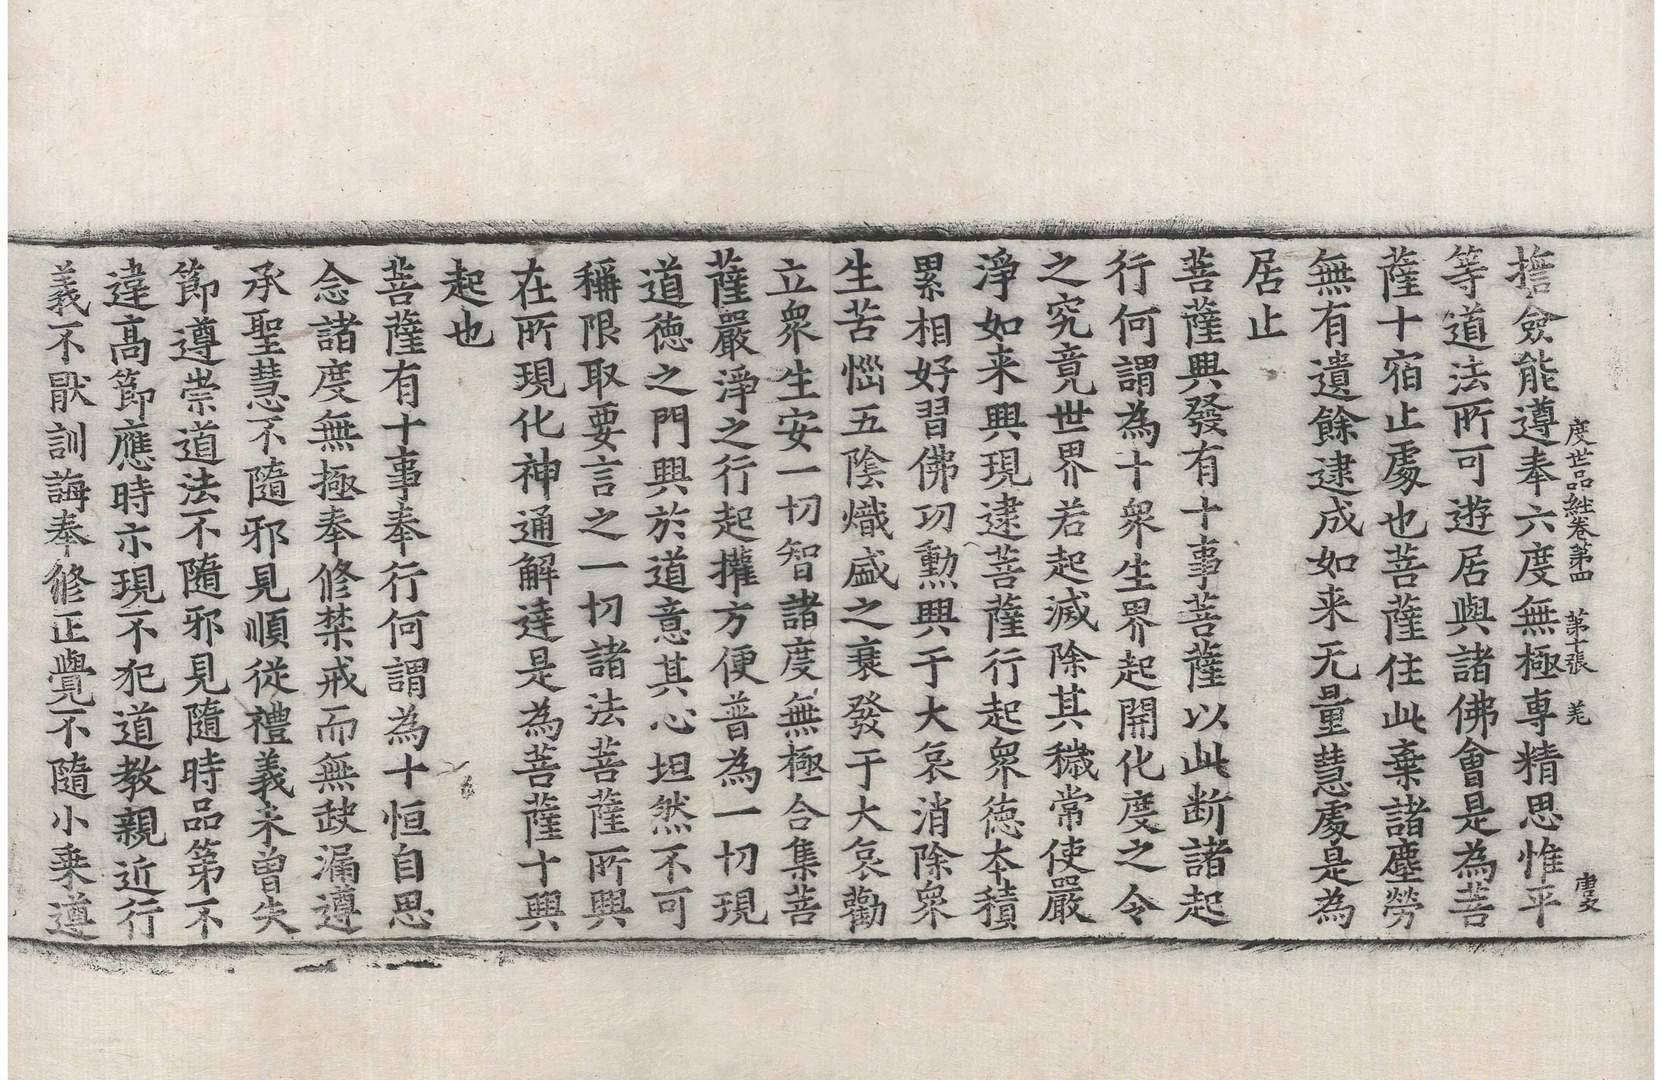 度世品経卷第四　第十張　羌
揞僉能遵奉六度無極專精思惟平
等道法所可遊居與諸佛會是為菩
薩十宿止處也菩薩住此棄諸塵勞
無有遺餘逮成如来无量慧處是為
居止
菩薩興發有十事菩薩以此断諸起
行何謂為十衆生界起開化度之令
之究竟世界若起滅除其穢常使嚴
淨如来興現逮菩薩行起衆德本積
累相好習佛功勲興于大哀消除衆
生苦惱五陰熾盛之衰發于大哀勸
立衆生安一切智諸度無極合集菩
薩嚴淨之行起攉方便普為一切現
道德之門興於道意其心坦然不可
稱限取要言之一切諸法菩薩所興
在所現化神通解達是為菩薩十興
起也
菩薩有十事奉行何謂為十恒自思
念諸度無極奉修禁戒而無缺漏遵
承聖慧不隨邪見順從禮義未曽失
節遵崇道法不隨邪見隨時品第不
違高節應時示現不犯道教親近行
義不猒訓誨奉修正覺不隨小乗遵